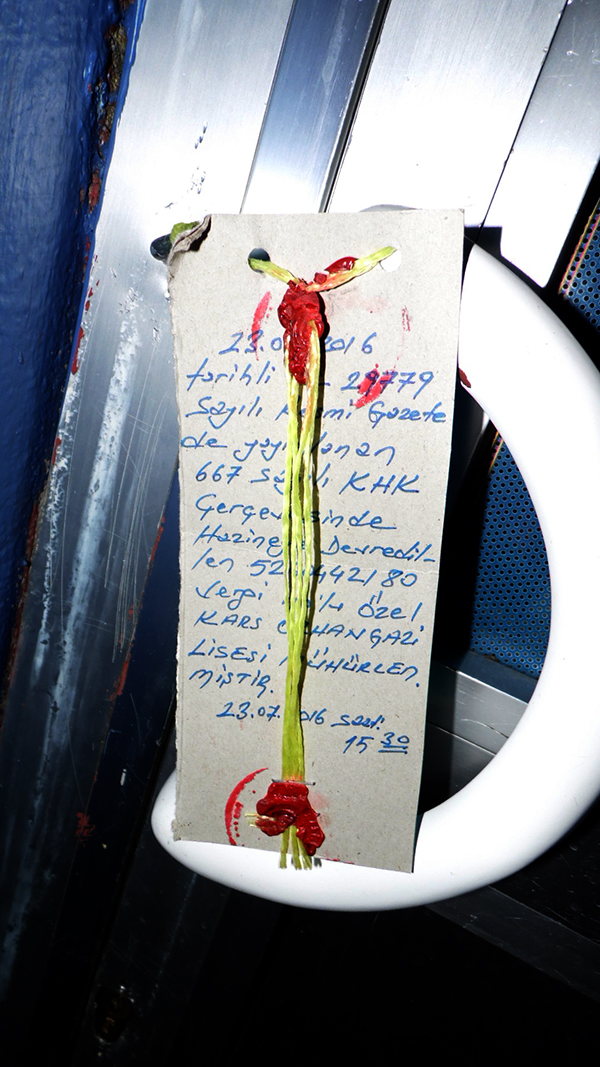 23.0 2016
tarihli 29779
Sayılı Resmi Gazete
de yayınlanan
667 Sayılı KHK
Çerçevesinde
Hazineye Devredil-
len 52 442180
Vergi özel
KARS ORHANGAZİ
LİSESİ MÜHÜRLEN.
MİŞTİR.
23.07.2016 saat:
15 30